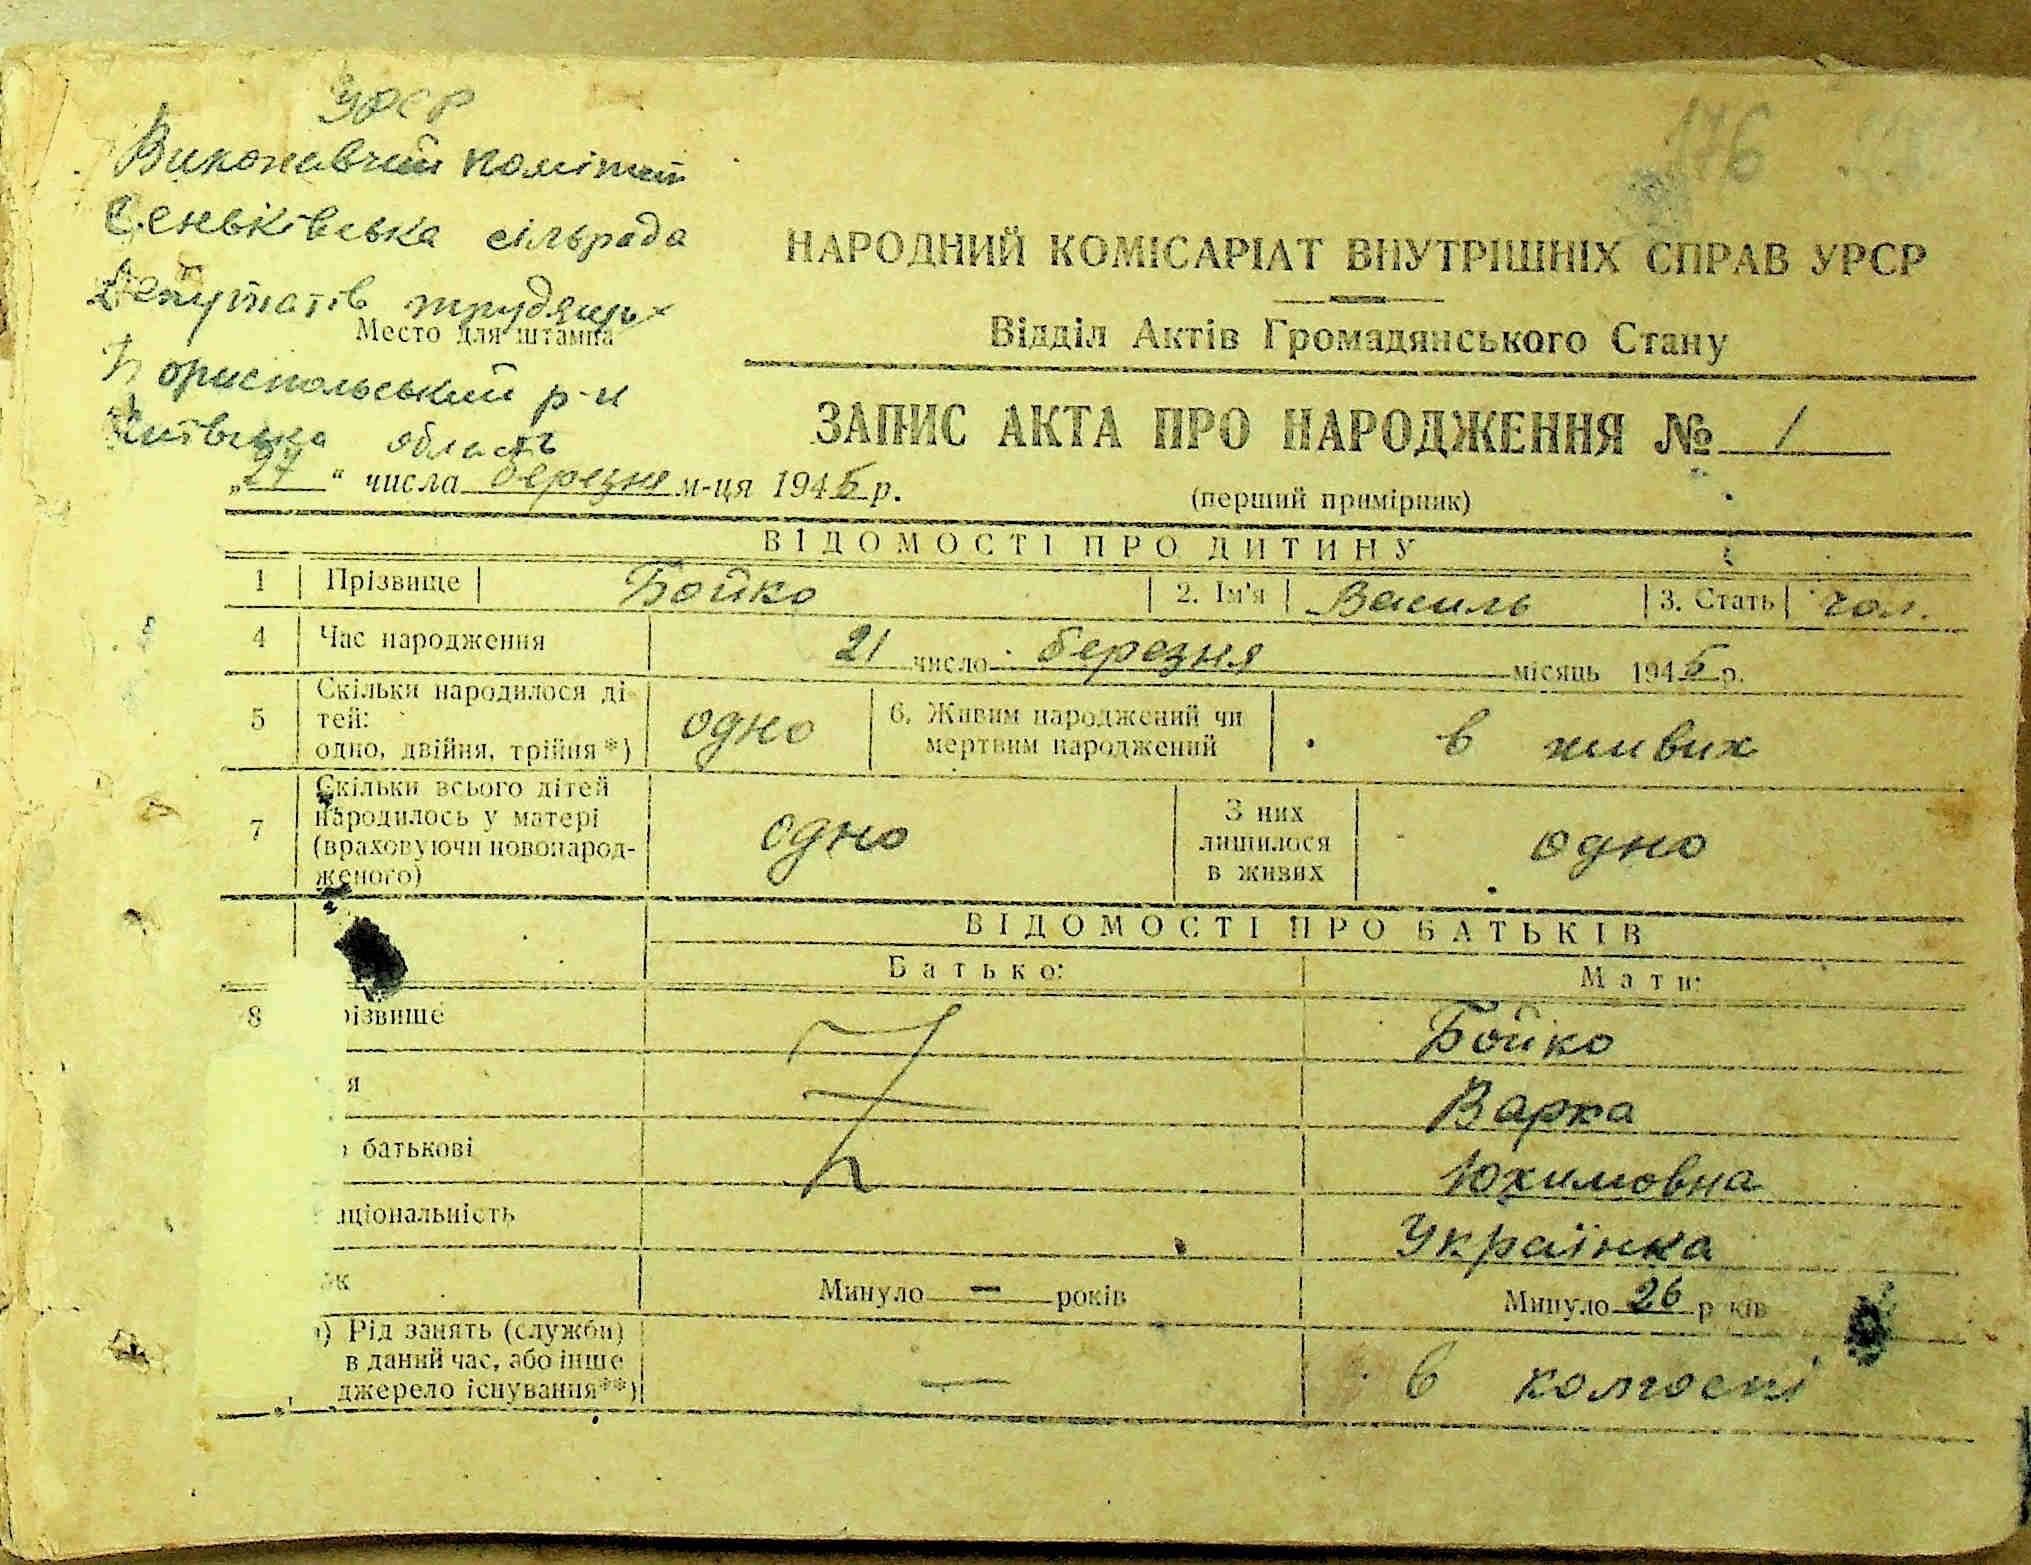 УРСР
176
Виконавчий комітет
Сеньківська сільрада
Депутатів трудящих
Место для штампа
Бориспольський р-н
Київська область
НАРОДНИЙ КОМІСАРІАТ ВНУТРІШНІХ СПРАВ УРСР
Відділ Актів Громадянського Стану
ЗАПИС АКТА ПРО НАРОДЖЕННЯ № 1
„27“ числа березня м-ця 1945 р.
(перший примірник)
ВІДОМОСТІ ПРО ДИТИНУ
1 Прізвище Бойко 2. Ім'я Василь 3. Стать чол.
4 Час народження 21 число березня місяць 1945 р.
5 Скільки народилося ді-
тей:
одно, двійня, трійня*) одно
6. Живим народжений чи
мертвим народжений в живих
7 Скільки всього дітей
народилось у матері
(враховуючи новонарод-
женого) одно
З них
лишилося
в живих одно
ВІДОМОСТІ ПРО БАТЬКІВ
Батько: Мати:
8 різвище Бойко
я Варка
о батькові Юхимовна
аціональність Українка
ік Минуло — років Минуло 26 р ків
) Рід занять (служби)
в даний час, або інше
джерело існування**) — в колгоспі